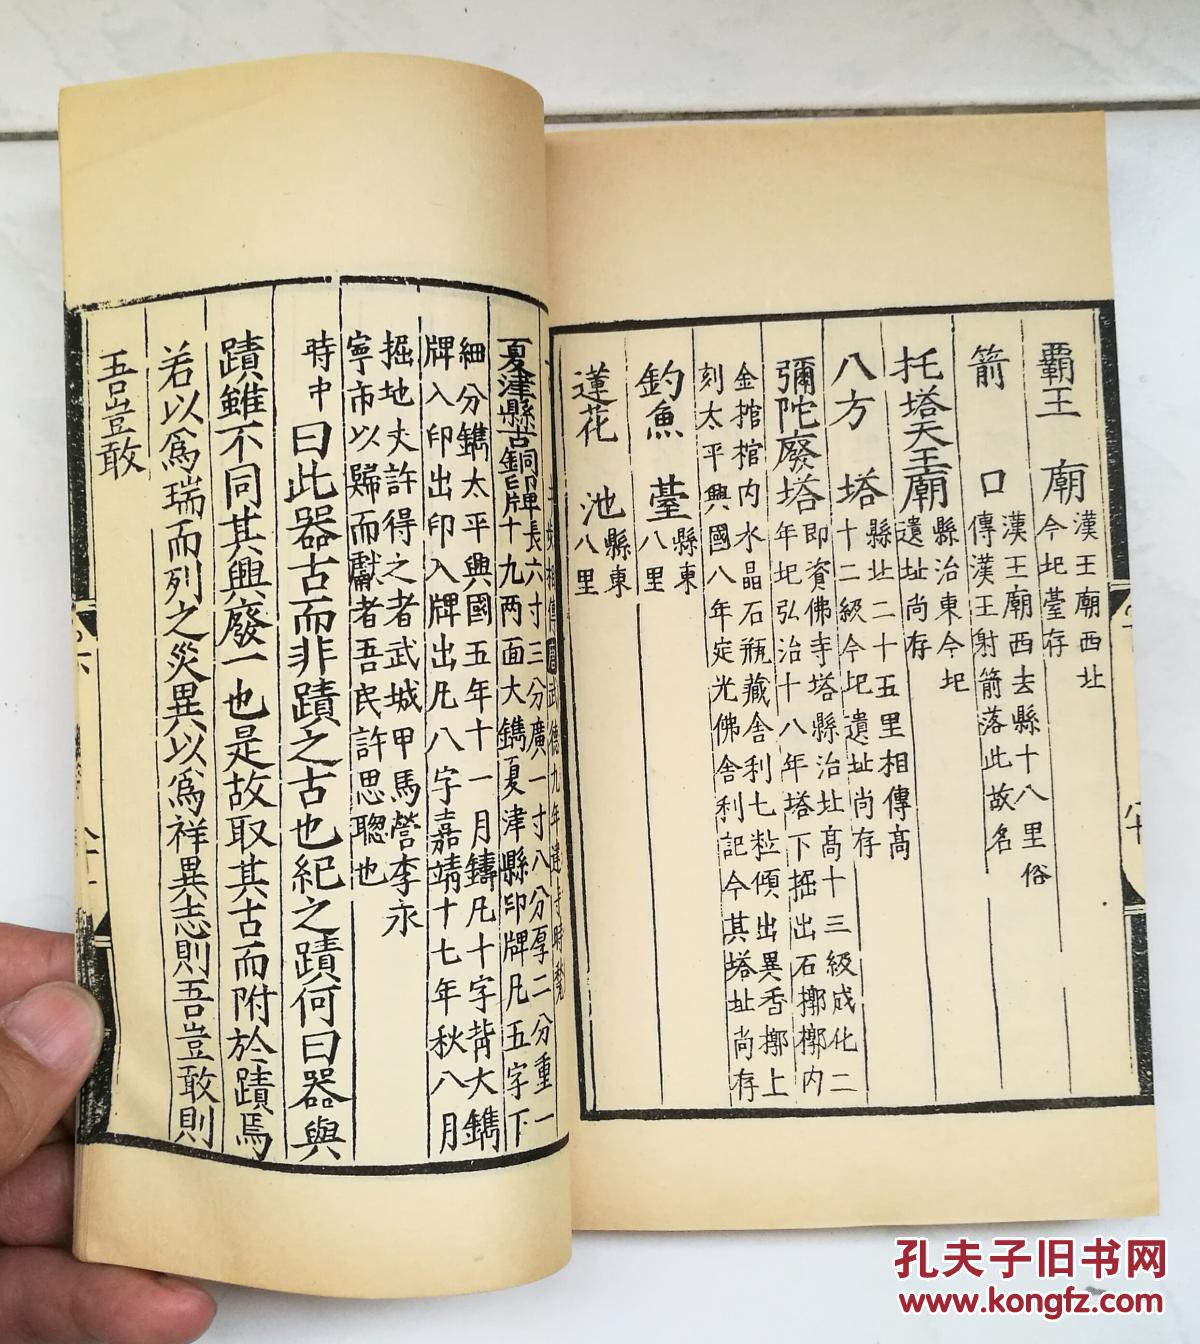 霸王廟漢王廟西址今圮臺存
箭口漢王廟西去縣十八里俗傳漢王射箭落此故名
托塔天王廟縣治東今圮遺址尚存
八方塔縣址二十五里相傳高十二級今圮遺址尚存
彌陀廢塔即資佛寺塔縣治址高十三級成化二年圮弘治十八年塔下掘出石槨槨內
金棺棺內水晶石瓶藏舍利七粒傾出異香槨上刻太平興國八年定光佛舍利記今其塔址尚存
釣魚臺縣東八里
蓮花池縣東八里
相傳唐武德九年建寺時
夏津縣古銅印牌長六寸三分廣一寸八分厚二分重一十九两面大鐫夏津縣印牌凡五字下
細分鐫太平興國五年十一月鑄凡十字背大鐫牌入印出印入牌出凡八字嘉靖十七年秋八月
掘地夫許得之者武城甲馬營李永寧市以歸而獻者吾民許思聰也
時中曰此器古而非蹟之古也紀之蹟何曰器與
蹟雖不同其興廢一也是故取其古而附於蹟焉
若以為瑞而列之災異以為祥異志則吾豈敢則
吾豈敢
孔夫子旧书网
www.kongfz.com